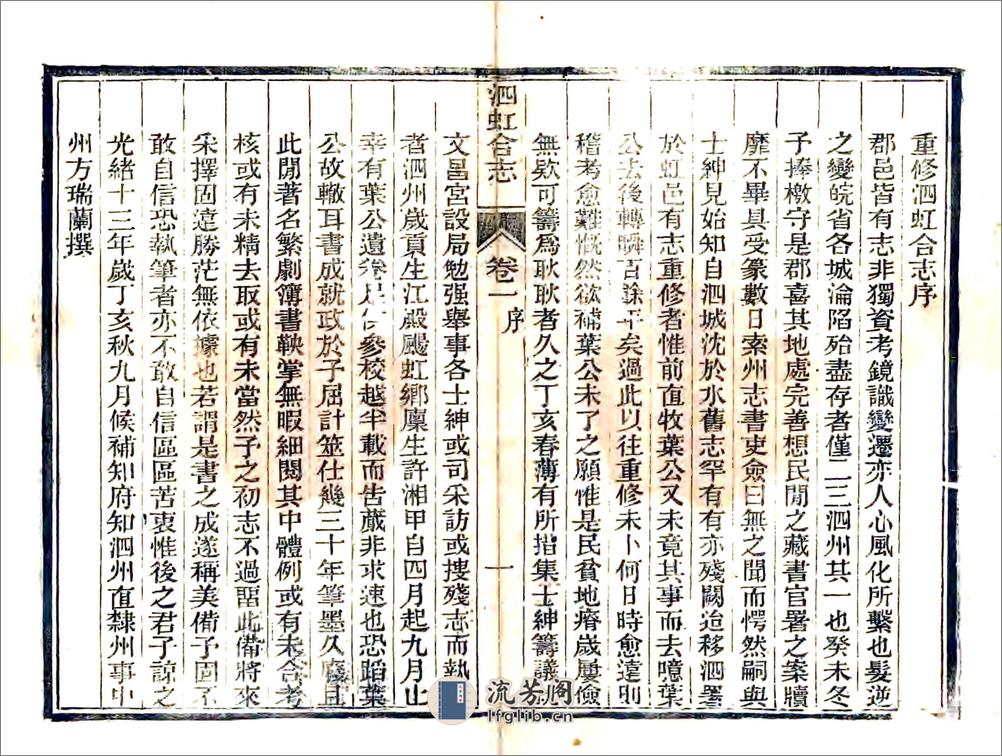 重修泗虹合志序
郡邑皆有志非獨資考鏡識變遷亦人心風化所繫也髮逆
之變皖省各城淪陷殆盡存者僅二三泗州其一也癸未冬
予捧檄守是郡喜其地處完善想民閒之藏書官署之案牘
靡不畢具受篆數日索州志書吏僉曰無之聞而愕然嗣與
士紳見始知自泗城沈於水舊志罕有有亦殘闕迨移泗墨
於虹邑有志重修者惟前直牧葉公又未竟其事而去噫葉
公去後轉瞬百餘年矣過此以往重修未卜何日時愈遠則
稽考愈難慨然欲補葉公未了之願惟是民貧地瘠歲屢儉
無欵可籌爲耿耿者久之丁亥春薄有所措集士紳籌議
泗虹合志
卷一 序
一
文昌宮設局勉强舉事各士紳或司采訪或搜殘志而執
者泗州歲貢生江殿颺虹鄉廩生許湘甲自四月起九月止
幸有葉公遺卷足 參校越半載而告蕆非求速也恐蹈葉
公故轍耳書成就政於予屈計筮仕幾三十年筆墨久廢且
此閒著名繁劇簿書鞅掌無暇細閱其中體例或有未合考
核或有未精去取或有未當然予之初志不過留此備將來
采擇固遠勝茫無依據也若謂是書之成遂稱美備予固不
敢自信恐執筆者亦不敢自信區區苦衷惟後之君子諒之
光緒十三年歲丁亥秋九月候補知府知泗州直隸州事中
州方瑞蘭撰
流芳閣
lfglib.cn